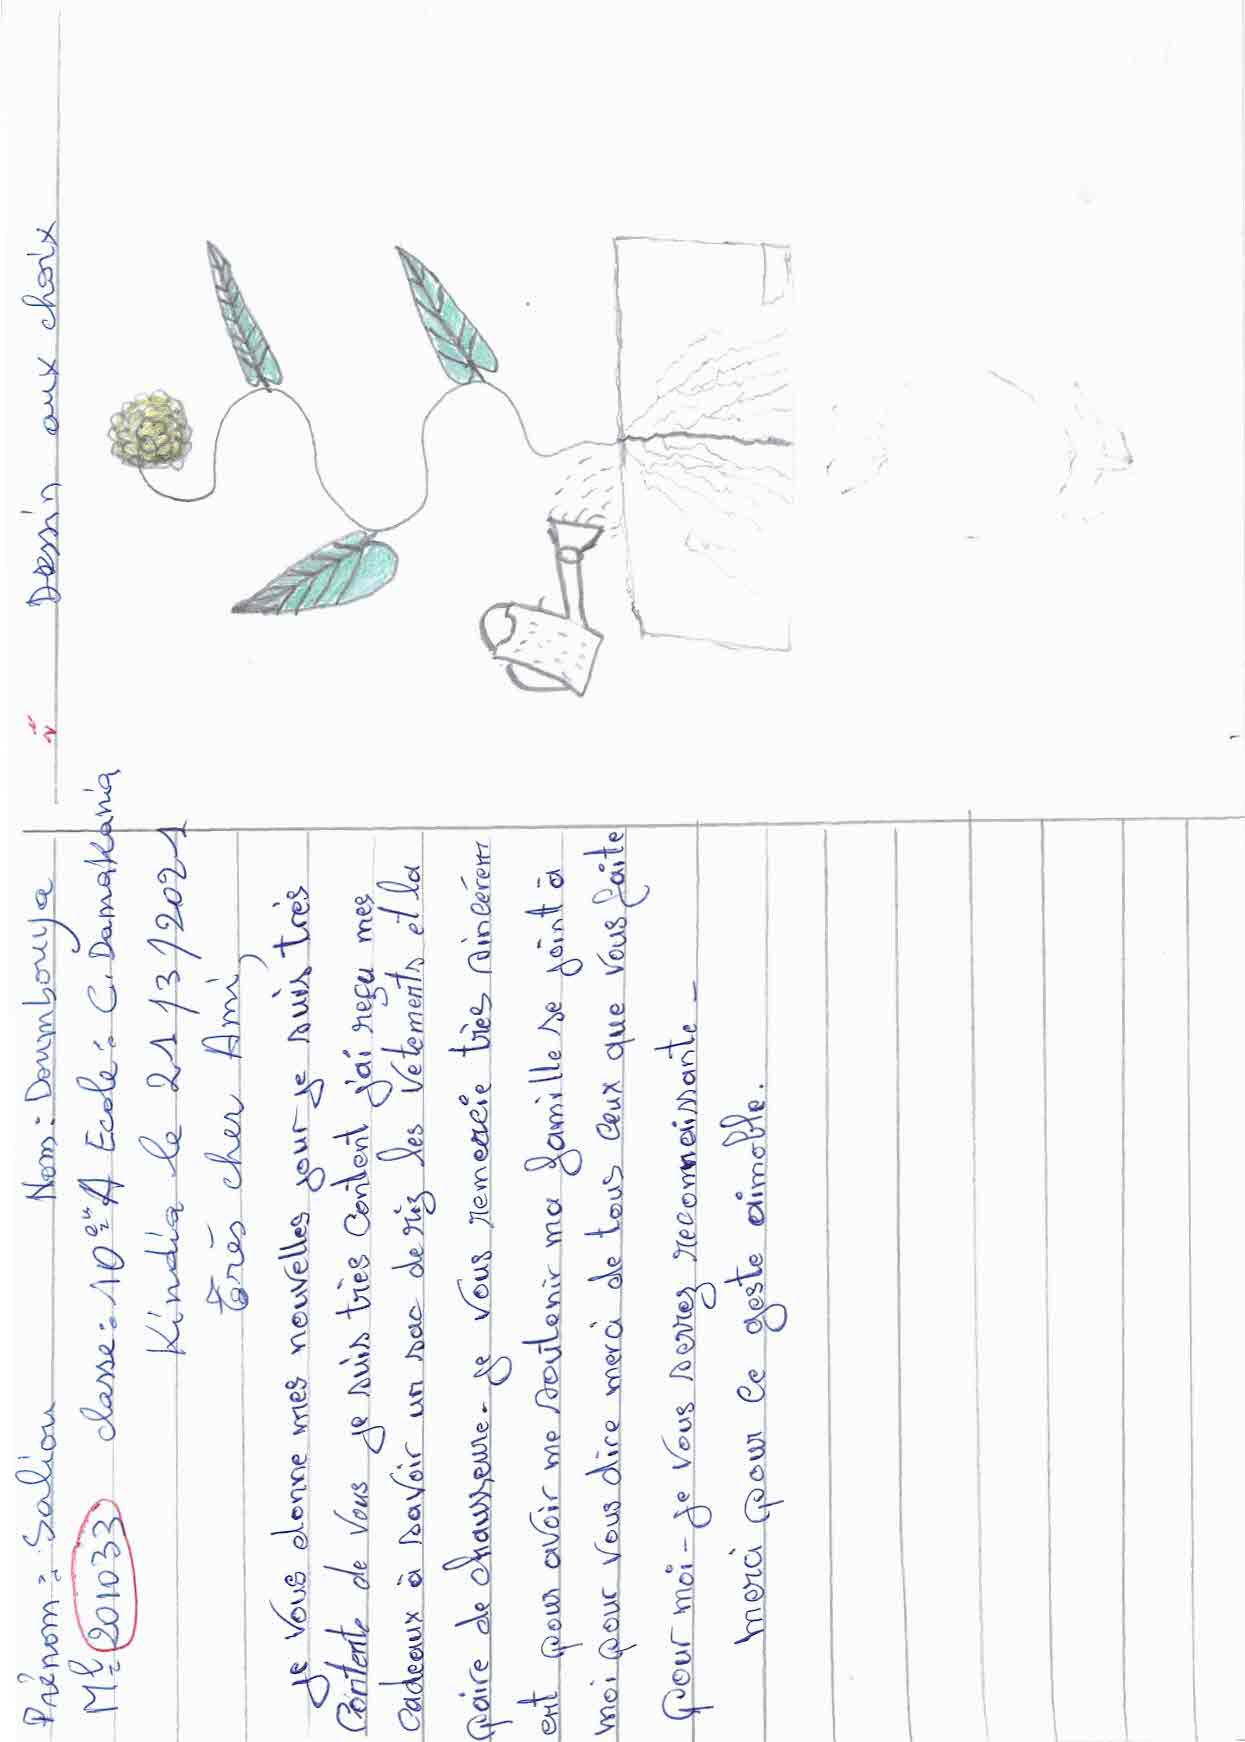 Prénom : Saliou Nom : Doumbouya
Mle 201033 classe : 10ème A Ecole : C. Damakania
Kindia le 21/3/2021
Très cher Ami,
je vous donne mes nouvelles jour-je suis très
Contente de vous je suis très content j'ai reçu mes
cadeaux à savoir un sac de riz les vetements et la
paire de chaussure - je vous remercie très sincèrem
ent pour avoir me soutenir ma famille se joint à
moi pour vous dire merci de tous ceux que vous faite
pour moi - je vous serrez reconnaissante -
merci pour ce geste aimable.
Dessin aux choix